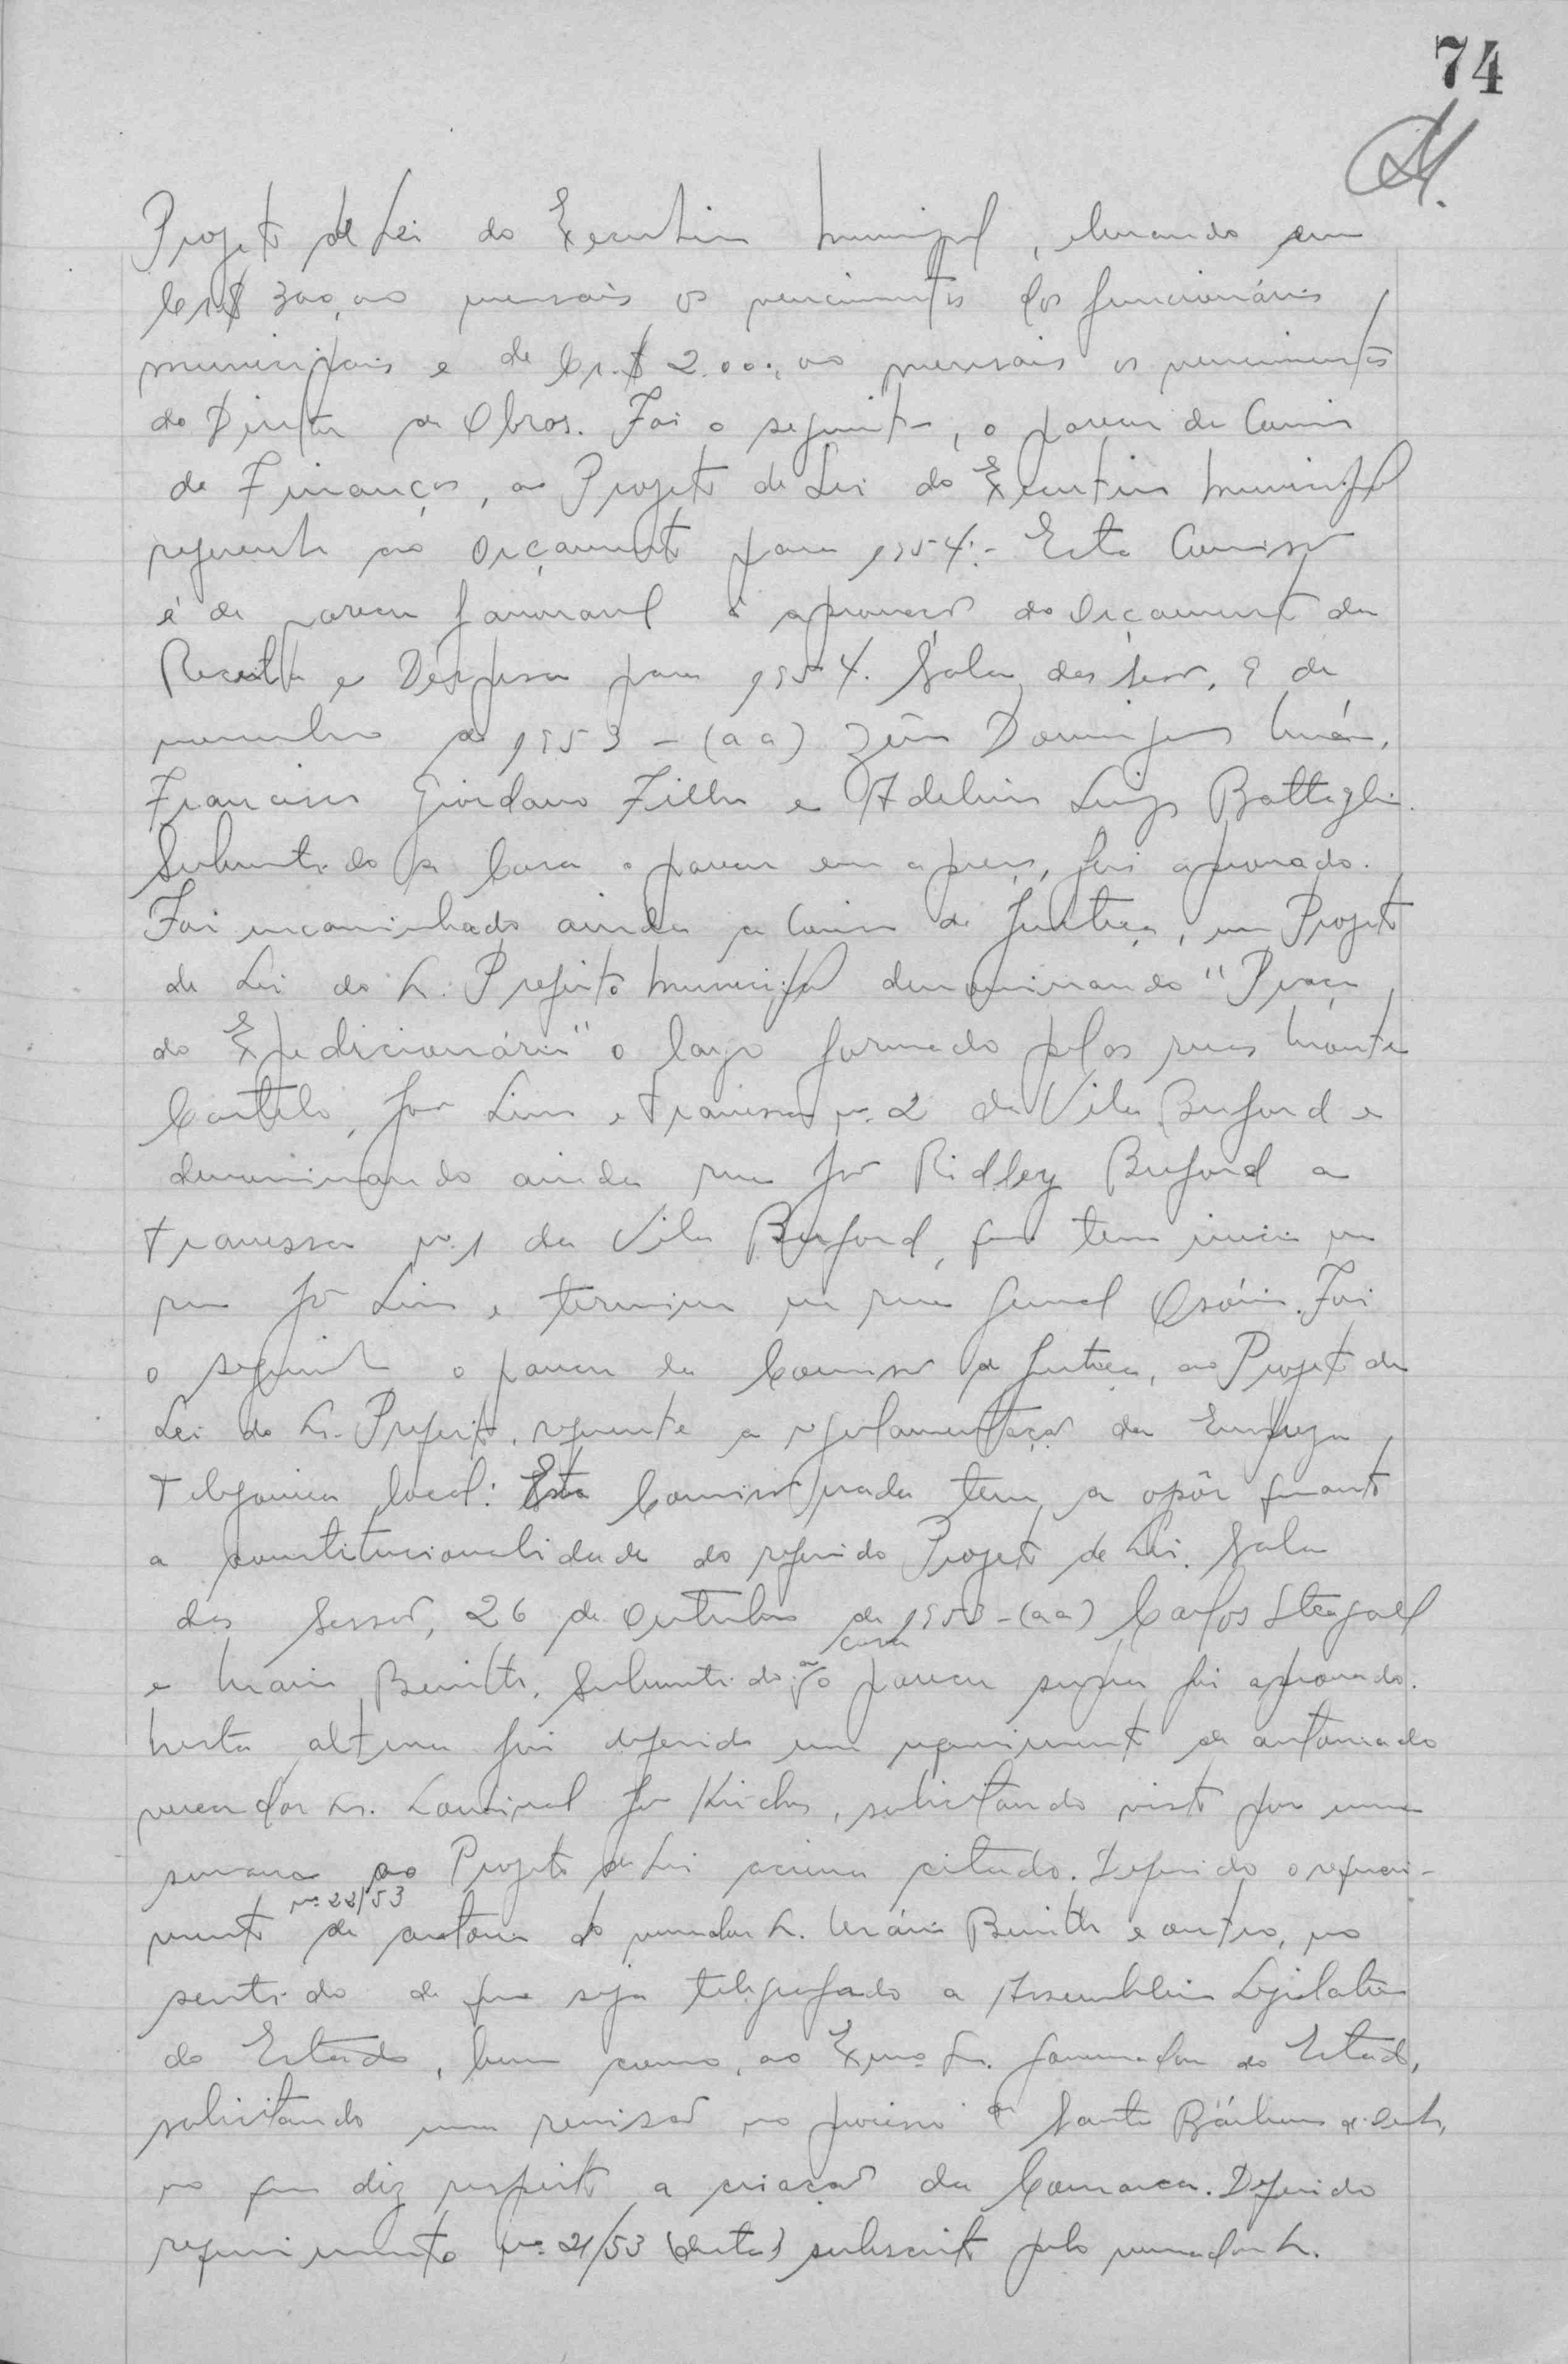 74
Projeto de Lei do Executivo Municipal, elevando em
Cr$ 300,00 mensais os vencimentos dos funcionários
municipais e de Cr.$ 2.000,00 mensais os vencimentos
do Diretor de Obras. Foi o seguinte, o parecer da Comis
de Finanças, ao Projeto de Lei do Executivo Municipal
referente ao Orçamento para 1954:- Esta Comissão
é de parecer favoravel á aprovação do Orçamento da
Receita e Despesa para 1954. Sala das Sess, 9 de
novembro de 1953 - (a a) Zêno Domingues Maia,
Francisco Giordano Filho e Adelino Luigi Battaglia.
Submetido a Casa o parecer em apreço, foi aprovado.
Foi encaminhado ainda a Comis de Justiça, um Projeto
de Lei do Sr. Prefeito Municipal denominando "Praça
do Expedicionário" o largo formado pelas ruas Monte
Castelo, José Lins e travessa nº 2 da Vila Buford e
denominando ainda rua José Ridley Buford a
travessa nº 1 da Vila Buford, que tem inicio na
rua José Lins e termina na rua General Osório. Foi
o seguinte o parecer da Comissão de Justiça, ao Projeto de
Lei do Sr. Prefeito, referente a regulamentação da Empreza
Telefonica local: Esta Comissão nada tem a opôr quanto
a constitucionalidade do referido Projeto de Lei. Sala
das Sessões, 26 de Outubro de 1953 - (a a) Carlos Steagall
e Mario Benitti. Submetido a casa o parecer supra foi aprovado.
Nesta altura foi deferido um requerimento de autoria do
vereador Sr. Lourival José, solicitando vista por uma
semana ao Projeto de Lei acima citado. Deferido o requeri-
mento nº 22/53 de autoria do vereador Sr. Mário Benitti e outro, no
sentido de que seja telegrafado a Assembleia Legislativa
do Estado, bem como, ao Exmo Sr. Governador do Estado,
solicitando uma revisão no processo de Santa Bárbara d'Oeste,
no que diz respeito a criação da Comarca. Deferido
requerimento nº 21/53 subscrito pelo vereador Sr.